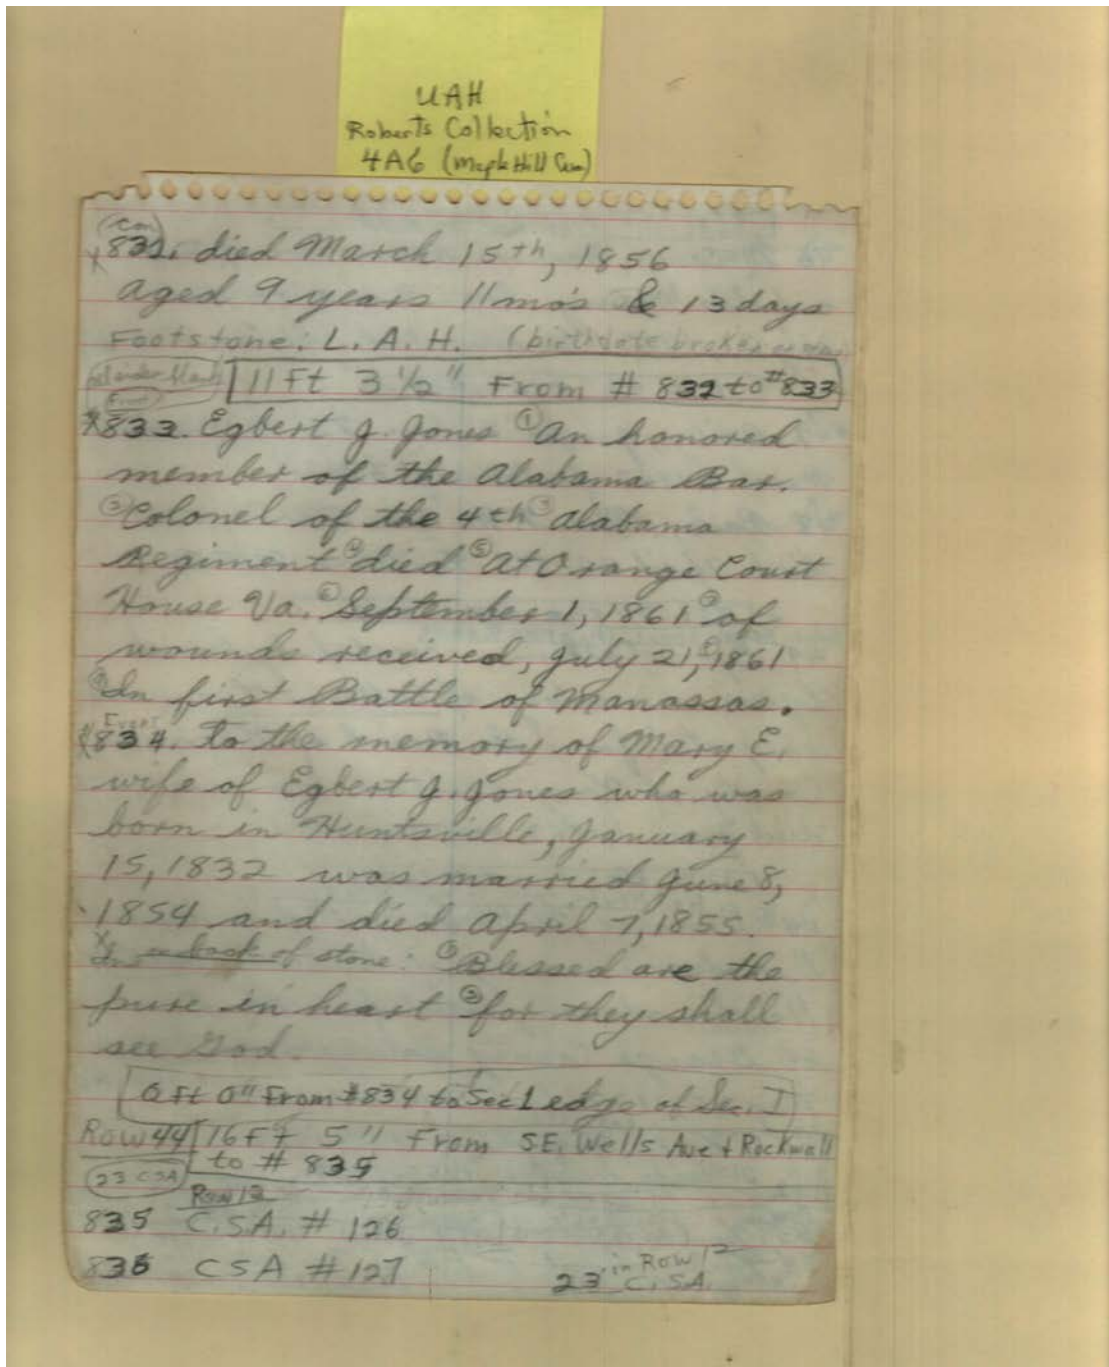 UAH
Roberts Collection
4A6 (Maple Hill Cem)
(Con)
*832. died March 15th, 1856
aged 9 years 11 mo's & 13 days
Footstone: L. A. H. (birthdate broken
11 Ft 3 1/2" From # 832 to #833
(Front)
*833. Egbert J. Jones ① An honored
member of the Alabama Bar.
② Colonel of the 4th ③ Alabama
Regiment ④ died ⑤ At Orange Court
House Va. ⑥ September 1, 1861 ⑦ of
wounds received, July 21, ⑧ 1861
⑨ In first Battle of Manassas.
Front
*834. To the memory of Mary E.
wife of Egbert J. Jones who was
born in Huntsville, January
15, 1832 was married June 8,
1854 and died April 7, 1855.
on back of stone: ① Blessed are the
pure in heart ② for they shall
see God.
0 ft 0" From #834 to Sec L edge of Sec. I
Row 44 16 Ft 5" From SE. Wells Ave + Rockwell
to # 835
23 CSA
Row 12
835 C.S.A. # 126
836 CSA # 127
in Row 12
23 C.S.A.